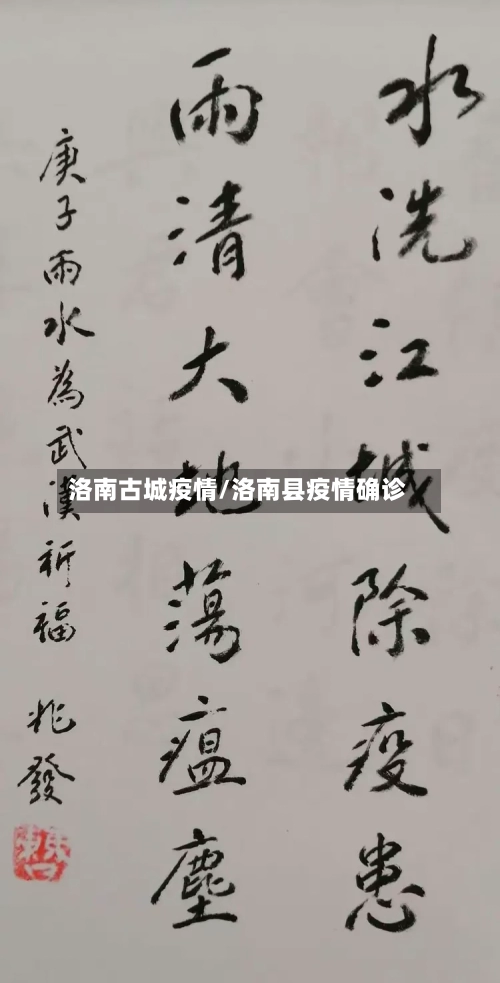 水洗江城除疫患
雨清大地蕩瘟塵
庚子雨水為武漢祈福 兆發
洛南古城疫情/洛南县疫情确诊